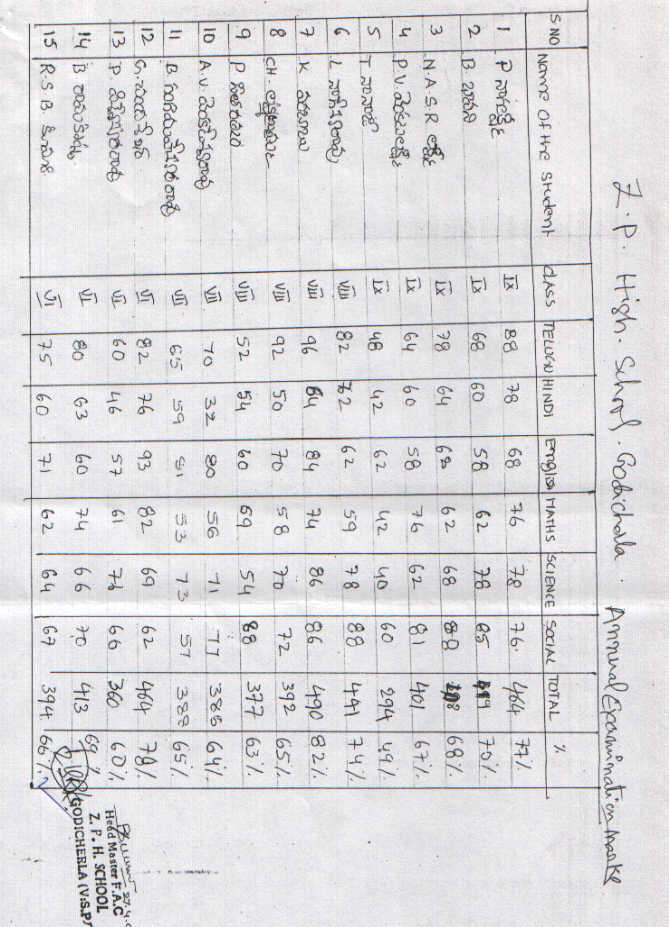 Z.P. High. School. Godichala. Annual Examination marks
S NO Name of the Student CLASS TELUGU HINDI English MATHS SCIENCE SOCIAL TOTAL %
1 P IX 88 78 68 76 78 76. 464 77%
2 B. భవాని IX 68 60 58 62 78 419 70%
3 N.A.S.R లక్ష్మి IX 78 64 62 68 68%
4 P.V. వెంకటలక్ష్మి IX 64 60 58 76 62 81 401 67%
5 T IX 48 42 62 42 40 60 294 49%
6 L నాగేశ్వరరావు VIII 82 72 62 59 78 88 441 74%
7 K VIII 96 64 84 74 86 86 490 82%
8 CH. VIII 92 50 70 58 70 72 392 65%
9 P. VIII 52 54 60 69 54 88 377 63%
10 A.V. వెంకటేశ్వరరావు VII 70 32 80 56 71 77 386 64%
11 B VII 65 59 81 53 73 57 388 65%
12 G. VI 82 76 93 82 69 62 464 78%
13 P VI 60 46 57 61 66 360 60%
14 B VI 80 63 60 74 66 70 413 69%
15 R.S.B. కుమారి VI 75 60 71 62 64 67 394 66%
Head Master F.A.C
Z. P. H. SCHOOL
GODICHERLA (V.S.P)